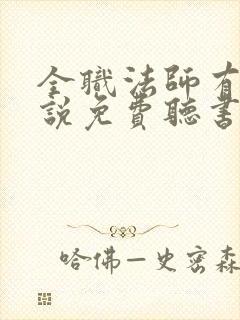 全職法師有
說免費聽書
哈佛—史密森